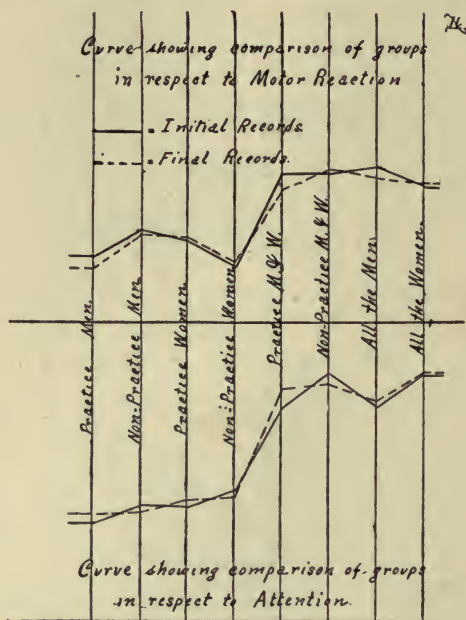 H.
Curve showing comparison of groups
in respect to Motor Reaction
= Initial Records.
= Final Records.
Practice Men.
Non-Practice Men.
Practice Women.
Non-Practice Women.
Practice M. & W.
Non-Practice M. & W.
All the Men.
All the Women.
Curve showing comparison of groups
in respect to Attention.